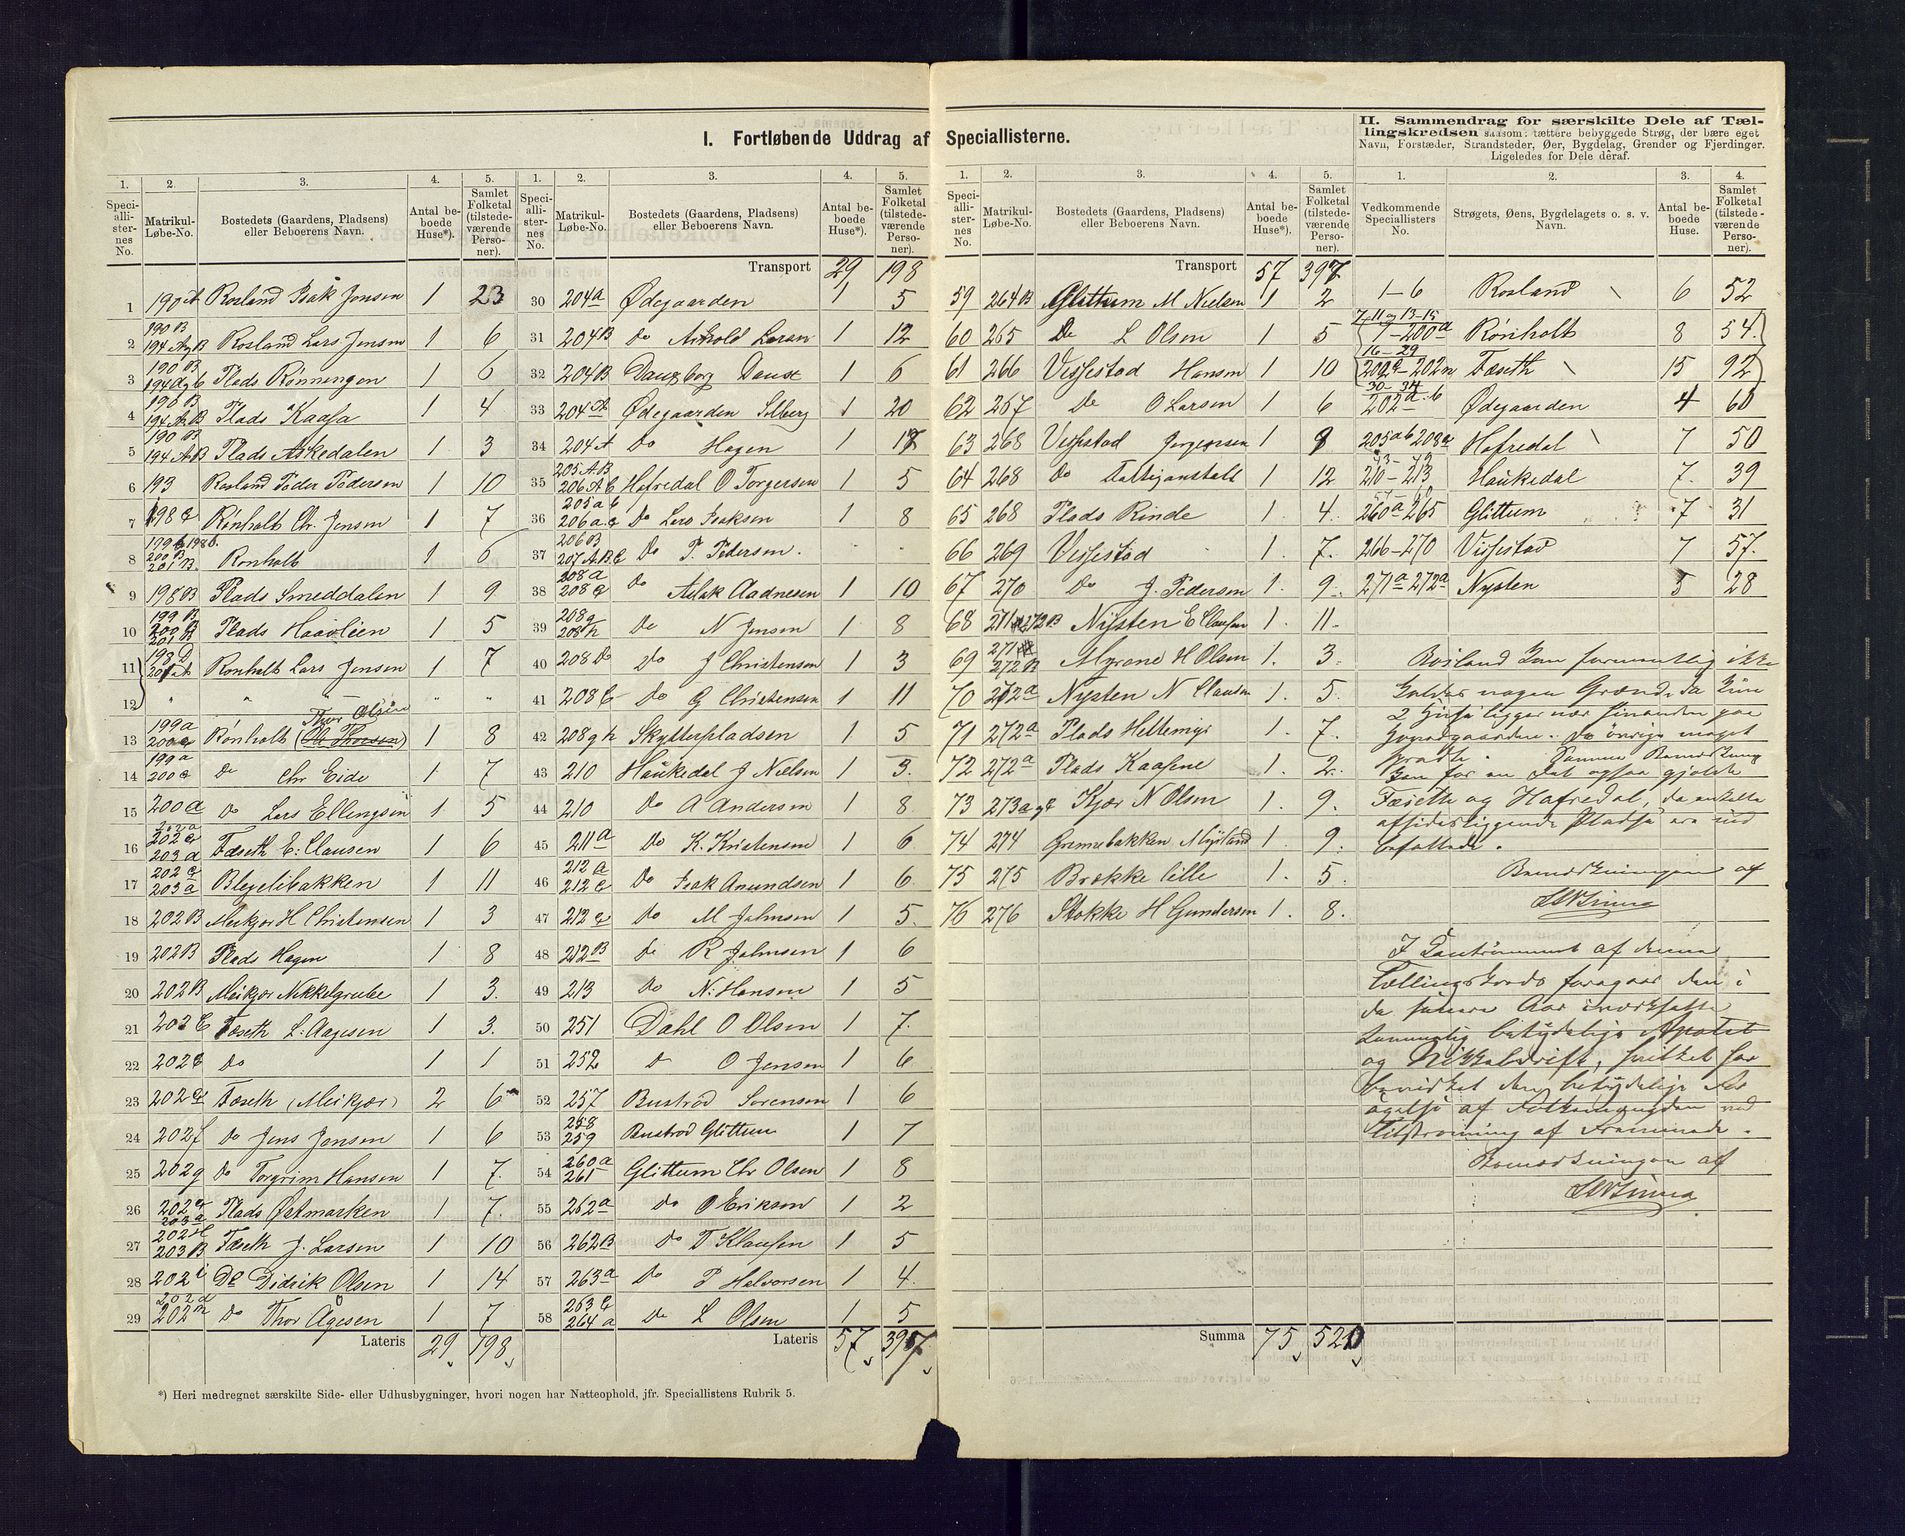 I. Fortløbende Uddrag af Speciallisterne.
1. Speciallisternes No. | 2. Matrikul-Løbe-No. | 3. Bostedets (Gaardens, Pladsens) eller Beboerens Navn. | 4. Antal beboede Huse*). | 5. Samlet Folketal (tilstedeværende Personer).
1 190A Rosland Isak Jensen 1 23
2 190B 194 A,B Rosland Lars Jensen 1 6
3 190B Plads Rønningen 1 6
4 190B 194 A,B Plads Kaasa 1 4
5 190B 194 A,B Plads Askedalen 1 3
6 193 Rosland Peder Pedersen 1 10
7 Rønholt Chr. Jensen 1 7
8 Rønholt 1 6
9 198B Plads Smeddalen 1 9
10 199B Plads Haavlien 1 5
11 Rønholt Lars Jensen 1 7
12 " " " " "
13 199a Rønholt Thor Olsen 1 8
14 199a Do Chr Eide 1 7
15 200a Do Lars Ellingsen 1 5
16 Fæseth E. Clausen 1 6
17 203a Blegelibakken 1 11
18 202B Meikjær H Christensen 1 3
19 202B Plads Hagen 1 8
20 202B Meikjær Nikkelgrube 1 3.
21 Fæseth L. Aagesen 1 3.
22 Do 1 1
23 Fæseth (Meikjær) 2 6
24 202f Do Jens Jensen 1 6
25 202g Do Torgrim Hansen 1 7.
26 203a Plads Østmarken 1 7.
27 202H 203B Fæseth J. Larsen 1 10
28 202i Do Didrik Olsen 1 14
29 202d 202m Do Thor Agesen 1 7
Lateris 29 198
Transport 29 198
30 204a Ødegaarden 1 5
31 204B Do Arhold Larsen 1 12
32 204B 1 6
33 204A Ødegaarden Solberg 1 20
34 204A Do Hagen 1 17
35 205 A.B Hafredal O Torgersen 1 5
36 Do Lars Isaksen 1 8
37 206B Do P. Pedersen. 1 .
38 208a Do Aslak Aadnesen 1 10
39 208g 208h Do N Jensen 1 8
40 208 Do J Christensen 1 3
41 Do G Christensen 1 11
42 208 g h Skytterpladsen 1 5
43 210 Haukedal J Nielsen 1 3.
44 210 Do A Andersen 1 8
45 211a Do K. Kristensen 1 6
46 212a Do Isak Amundsen 1 6.
47 Do M Johnsen 1 5.
48 212B Do R Johnsen 1 6
49 213 Do N. Hansen 1 5
50 251 Dahl O Olsen 1 7.
51 252 Do O Jensen 1 6
52 257 Bustrød Sørensen 1 6
53 258 259 Bustrød Glittum 1 7
54 260a 261 Glittum Chr Olsen 1 8
55 262a Do O Eriksen 1 2
56 262B Do T Klausen 1 5
57 263a Do P Halvorsen 1 4.
58 264a Do L Olsen 1 5
Lateris 57 397
Transport 57 397
59 264B Glittum M Nielsen 1 2
60 265 Do L Olsen 1 5
61 266 Vissestad Hansen 1 10
62 267 Do O Larsen 1 6
63 268 Vissestad Jørgensen 1 8
64 268 Do Fattiganstalt 1 12
65 268 Plads Rinde 1 4.
66 269 Vissestad 1. 7.
67 270 Do J. Pedersen 1. 9.
68 Nysten E Clausen 1. 11.
69 272B Myrane H Olsen 1. 3.
70 272a Nysten N Clausen 1. 5.
71 272a Plads Heltemyr 1. 7.
72 272a Plads Kaasene 1. 2.
73 Kjær N Olsen 1. 9.
74 274 1. 9.
75 275 Brække lille 1. 5.
76 276 Stokke H Gundersen 1. 8.
Summa 75 520
II. Sammendrag for særskilte Dele af Tællingskredsen saasom: tættere bebyggede Strøg, der bære eget Navn, Forstæder, Strandsteder, Øer, Bygdelag, Grender og Fjerdinger. Ligeledes for Dele deraf.
1. Vedkommende Speciallisters No. | 2. Strøgets, Øens, Bygdelagets o. s. v. Navn. | 3. Antal beboede Huse. | 4. Samlet Folketal (tilstedeværende Personer).
1-6 Rosland 6 52
7-11 og 13-15 Rønholt 8 54
16-29 Fæseth 15 92
30-34 Ødegaarden 4 60
Hafredal 7 50
210-213 Haukedal 7. 39
260a 265 Glittum 7 31
266-270 Vissestad 7 57.
271a 272a Nysten 5 28
Rosland kan formentlig ikke
kaldes nogen Grænd, da kun
2 Huse ligger nær hinanden paa
Hovedgaarden. De øvrige meget
spredte. Samme Bemærkning
kan for en Del ogsaa gjælde
Fæseth og Hafredal, da enkelte
afsidesliggende Pladse ere ind
befattede.
Bemærkningen af
I Centrummet af denne
Tællingskreds foregaar den i
de senere Aar iværksatte
temmelig betydelige Apatit
og Nikkeldrift, hvilket har
bevirket den betydelige For
øgelse af Folkemængden ved
Tilstrømning af Fremmede.
Bemærkningen af
*) Heri medregnet særskilte Side- eller Udhusbygninger, hvori nogen har Natteophold, jfr. Speciallistens Rubrik 5.